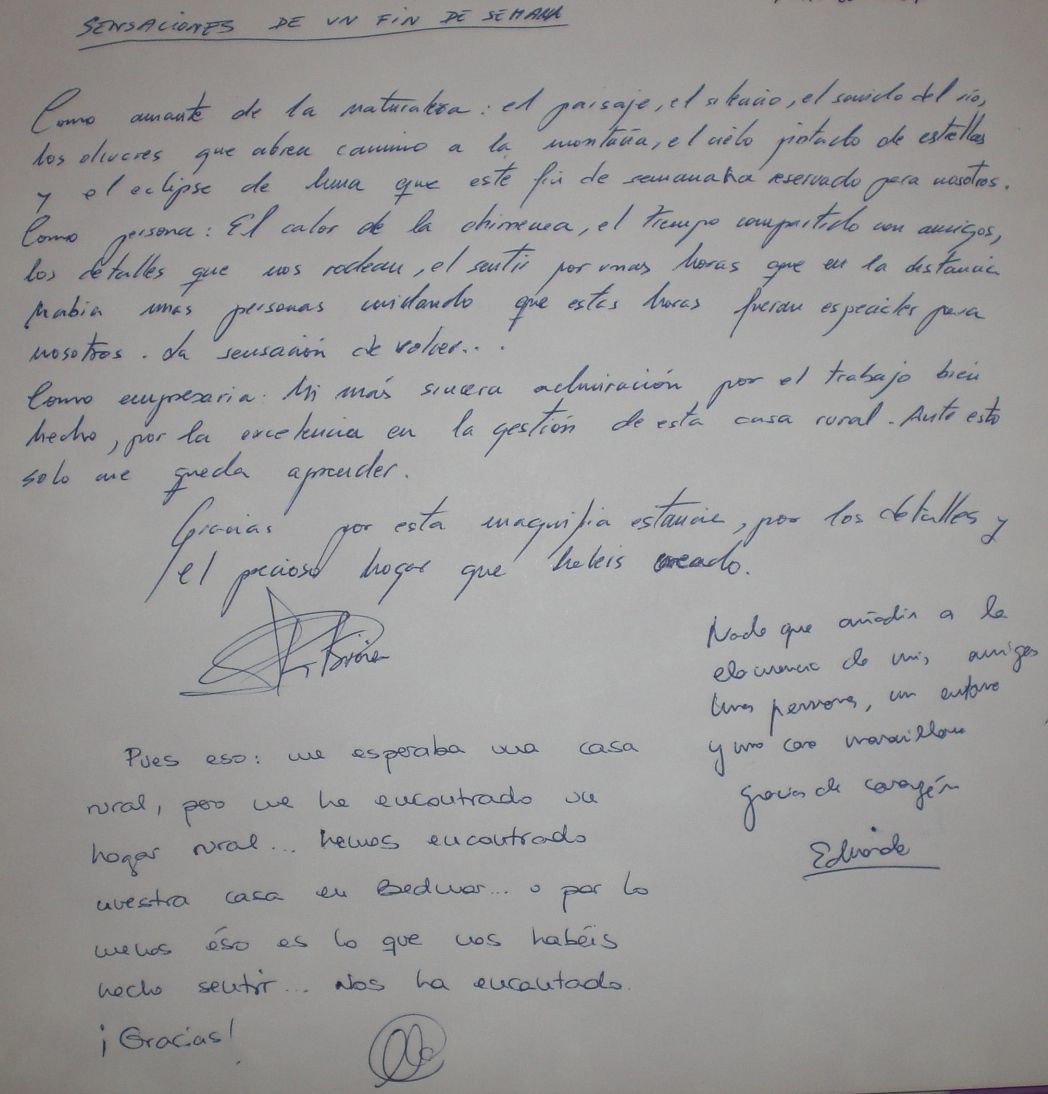 SENSACIONES DE UN FIN DE SEMANA
Como amante de la naturaleza: el paisaje, el silencio, el sonido del río,
los olivares que abren camino a la montaña, el cielo pintado de estrellas
y el eclipse de luna que este fin de semana ha reservado para nosotros.
Como persona: El calor de la chimenea, el tiempo compartido con amigos,
los detalles que nos rodean, el sentir por unas horas que en la distancia
había unas personas cuidando que estas horas fueran especiales para
nosotros. La sensación de volver...
Como empresaria: Mi más sincera admiración por el trabajo bien
hecho, por la excelencia en la gestión de esta casa rural. Ante esto
solo me queda aprender.
Gracias por esta magnifia estancia, por los detalles y
el precioso hogar que habeis creado.
Nada que añadir a la
elocuencia de mis amigos
Unas personas, un entorno
y una casa maravillosa
Gracias de corazón
Eduardo
Pues eso: me esperaba una casa
rural, pero me he encontrado un
hogar rural... hemos encontrado
nuestra casa en Bedmar... o por lo
menos éso es lo que nos habéis
hecho sentir... Nos ha encantado.
¡Gracias!